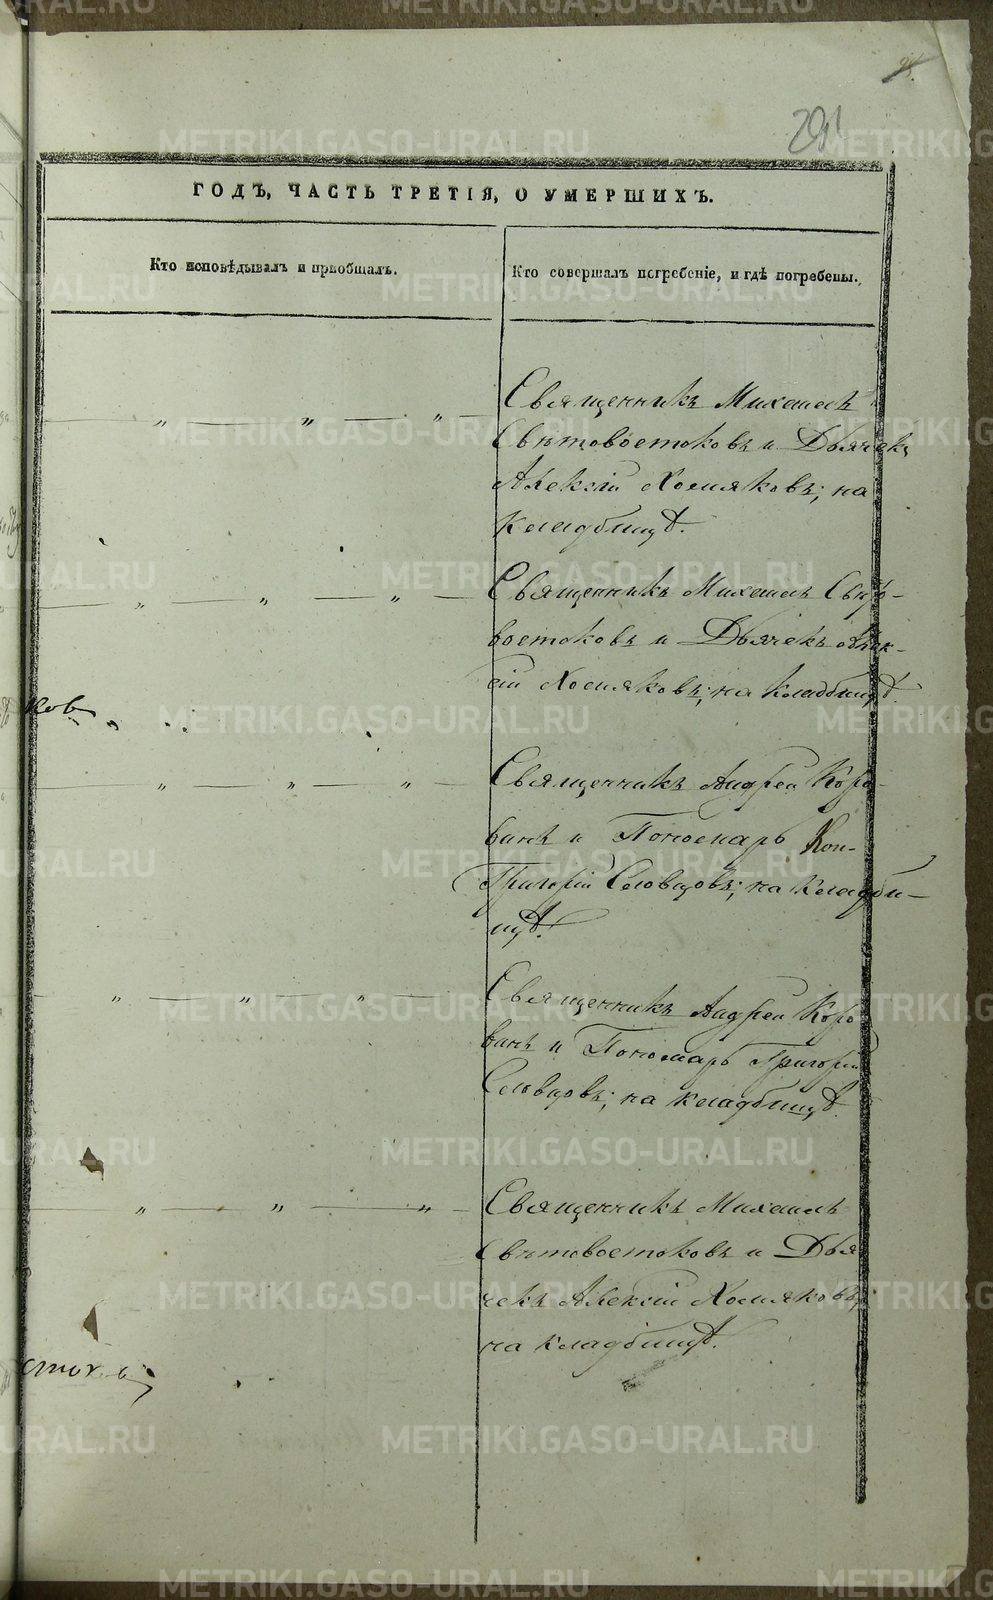 291
ГОДЪ, ЧАСТЬ ТРЕТІЯ, О УМЕРШИХЪ.
Кто исповѣдывалъ и пріобщалъ.
Кто совершалъ погребеніе, и гдѣ погребены.
Священникъ Михаилъ
Свѣтовостоковъ и Дьячекъ
Алексій Хомяковъ; на
кладбищѣ.
Священникъ Михаилъ Свѣто-
востоковъ и Дьячекъ Алек-
сій Хомяковъ; на кладбищѣ
ков
Священникъ Андрей Коро-
винъ и Пономарь
Григорій Словцовъ; на кладби-
щѣ.
Священникъ Андрей Коро
винъ и Пономарь Григорій
Словцовъ; на кладбищѣ.
Священникъ Михаилъ
Свѣтовостоковъ и Дья
чекъ Алексій Хомяковъ;
на кладбищѣ.
METRIKI.GASO-URAL.RU